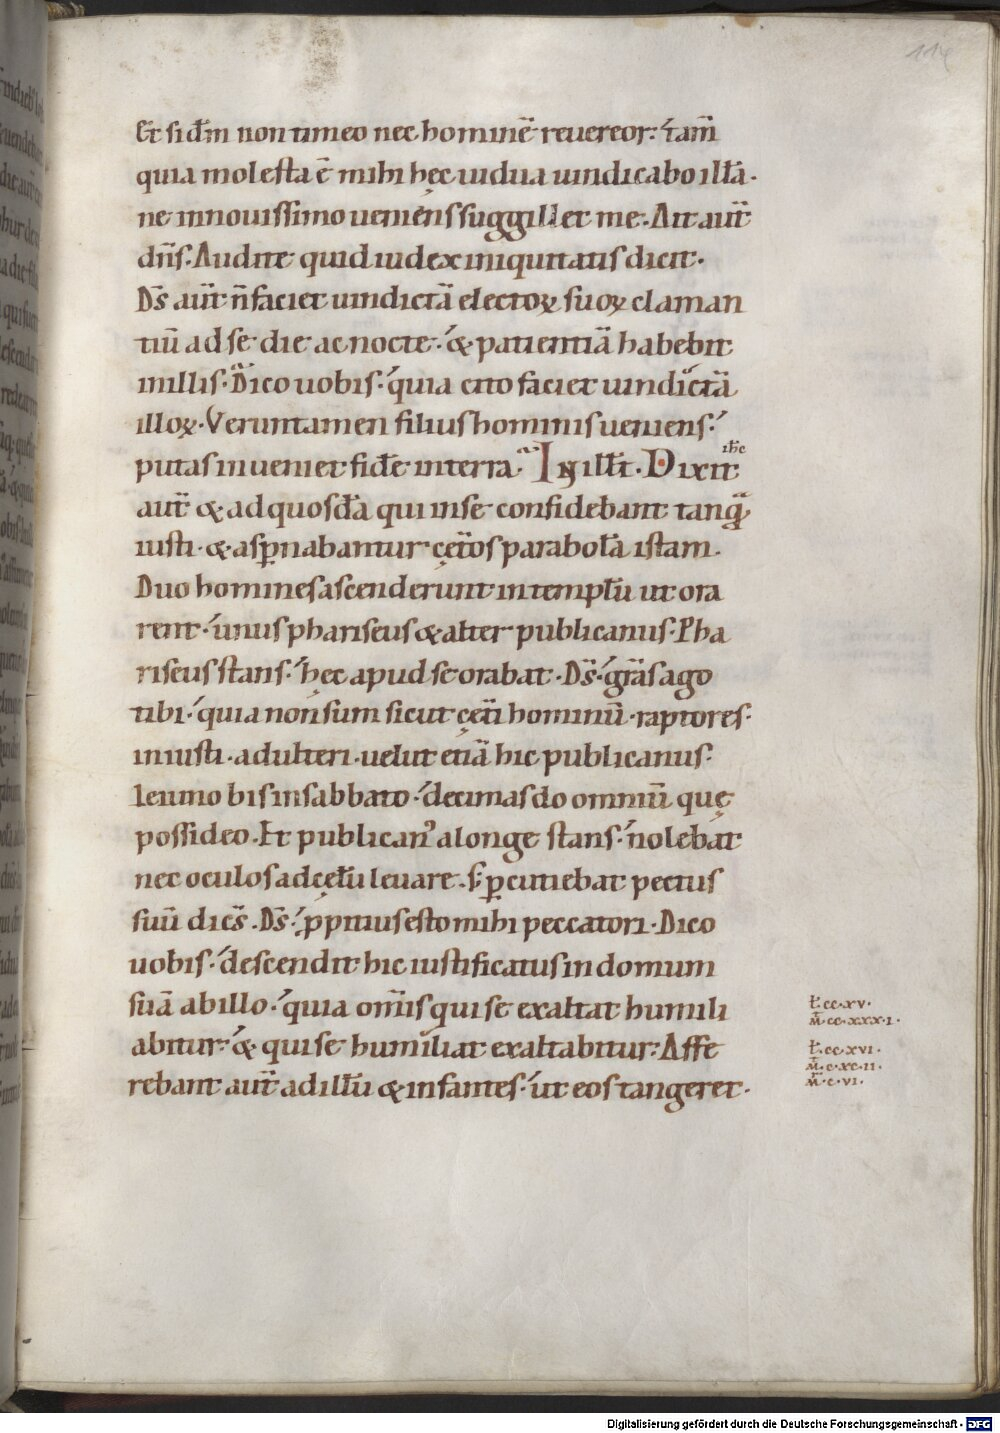 114
Et si dm̄ non timeo nec hominē reuereor· tam̄
quia molesta ē mihi hęc uidua uindicabo illā·
ne in nouissimo ueniens suggillet me· Ait aut̄
dn̄s· Audite quid iudex iniquitatis dicit·
Ds̄ aut̄ n̄ faciet uindictā electoꝝ suoꝝ claman
tiū ad se die ac nocte· & patientiā habebit
in illis· Dico uobis· quia cito faciet uindictā
illoꝝ· Veruntamen filius hominis ueniens·
putas inueniet fidē in terra· In ill̄t· Dixit ih̄c
aut̄ & ad quosdā qui in se confidebant tanq̄
iusti· & asꝑnabantur cęt̄os parabolā istam·
Duo homines ascenderunt in templū ut ora
rent· unus phariseus & alter publicanus· Pha
riseus stans· hęc apud se orabat· Ds̄· grās ago
tibi· quia non sum sicut cęt̄i hominū· raptores·
iniusti· adulteri· uelut etiā hic publicanus·
Ieiuno bis in sabbato· decimas do omniū quę
possideo· Et publican᾽ a longe stans· nolebat
nec oculos ad cęlū leuare· s; ꝑcutiebat pectus
suū dicēs· Ds̄· ꝓpitius esto mihi peccatori· Dico
uobis· descendit hic iustificatus in domum
suā ab illo· quia om̄is qui se exaltat humili
abitur· & qui se humiliat exaltabitur· Affe
rebant aut̄ ad illū & infantes· ut eos tangeret·
ł· cc·xv·
m̄· cc·xxx·i·
ł· cc·xvi·
m̄· c·xc·ii·
m̄· c·vi·
Digitalisierung gefördert durch die Deutsche Forschungsgemeinschaft - DFG